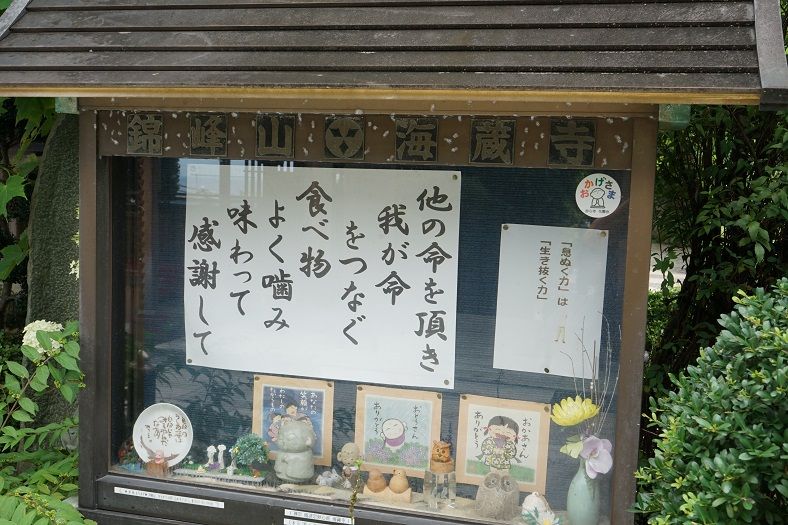 錦峰山海蔵寺
他の命を頂き
我が命
をつなぐ
食べ物
よく噛み
味わって
感謝して
おかげさま
「息ぬく力」は
「生き抜く力」
あなたの
笑顔が
おとうさん
ありがとう
おかあさん
ありがとう